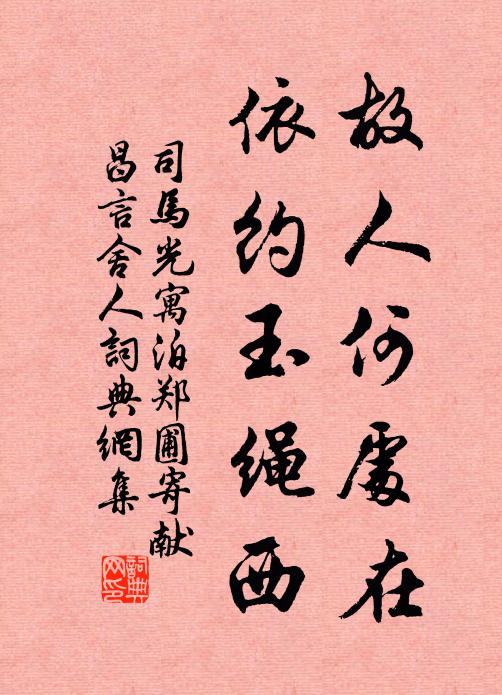 故人何處在
依約玉绳西
司馬光寓泊郑圃寄献
昌言舍人詞典網集
詞典网印